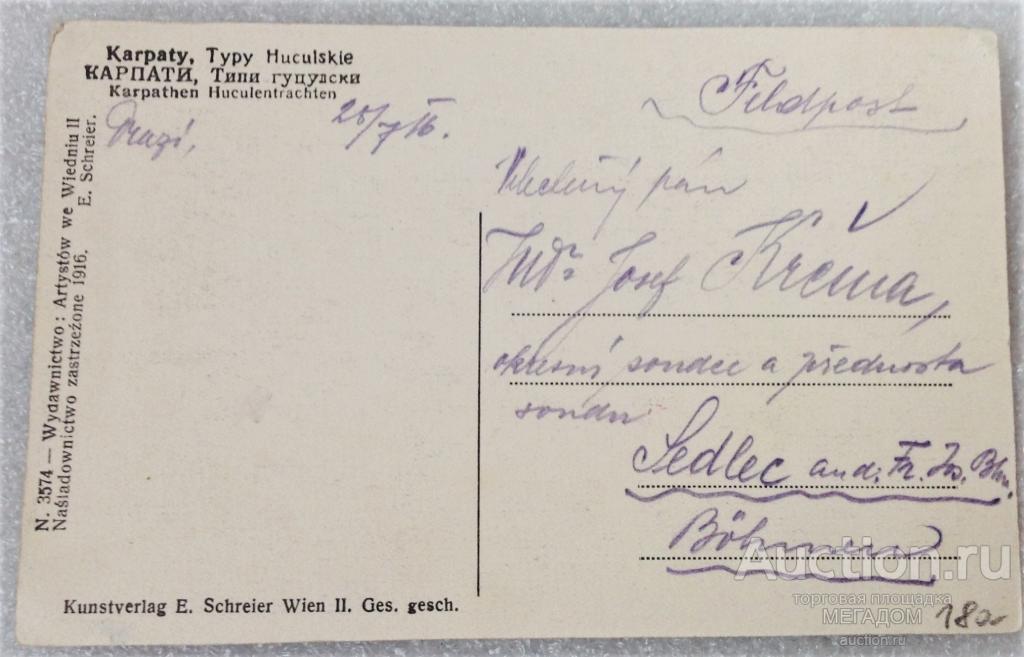 Karpaty, Typy Huculskie
КАРПАТИ, Типи гуцулски
Karpathen Huculentrachten
25/7 16.
N. 3574 — Wydawnictwo: Artystów we Wiedniu II
E. Schreier.
Naśladownictwo zastrzeżone 1916.
Feldpost
pán
JUDr Josef Krčma,
okresní soudce a přednosta
soudu
Sedlec an d. Fr. Jos. Bhn.
Böhmen
Kunstverlag E. Schreier Wien II. Ges. gesch.
18a
Auction.ru
торговая площадка
МЕГАДОМ
auction.ru